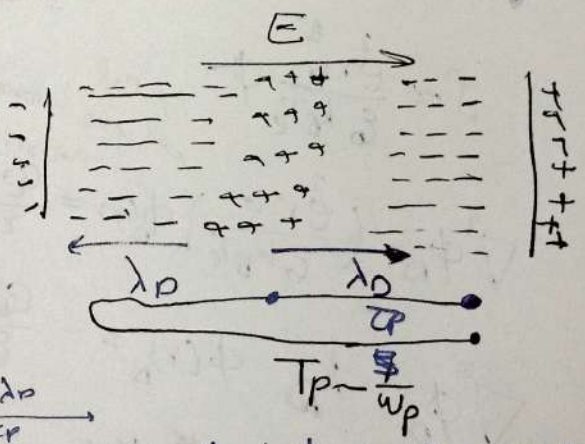 E
λD λD
τp
Tp ~ 1/ωp
λD